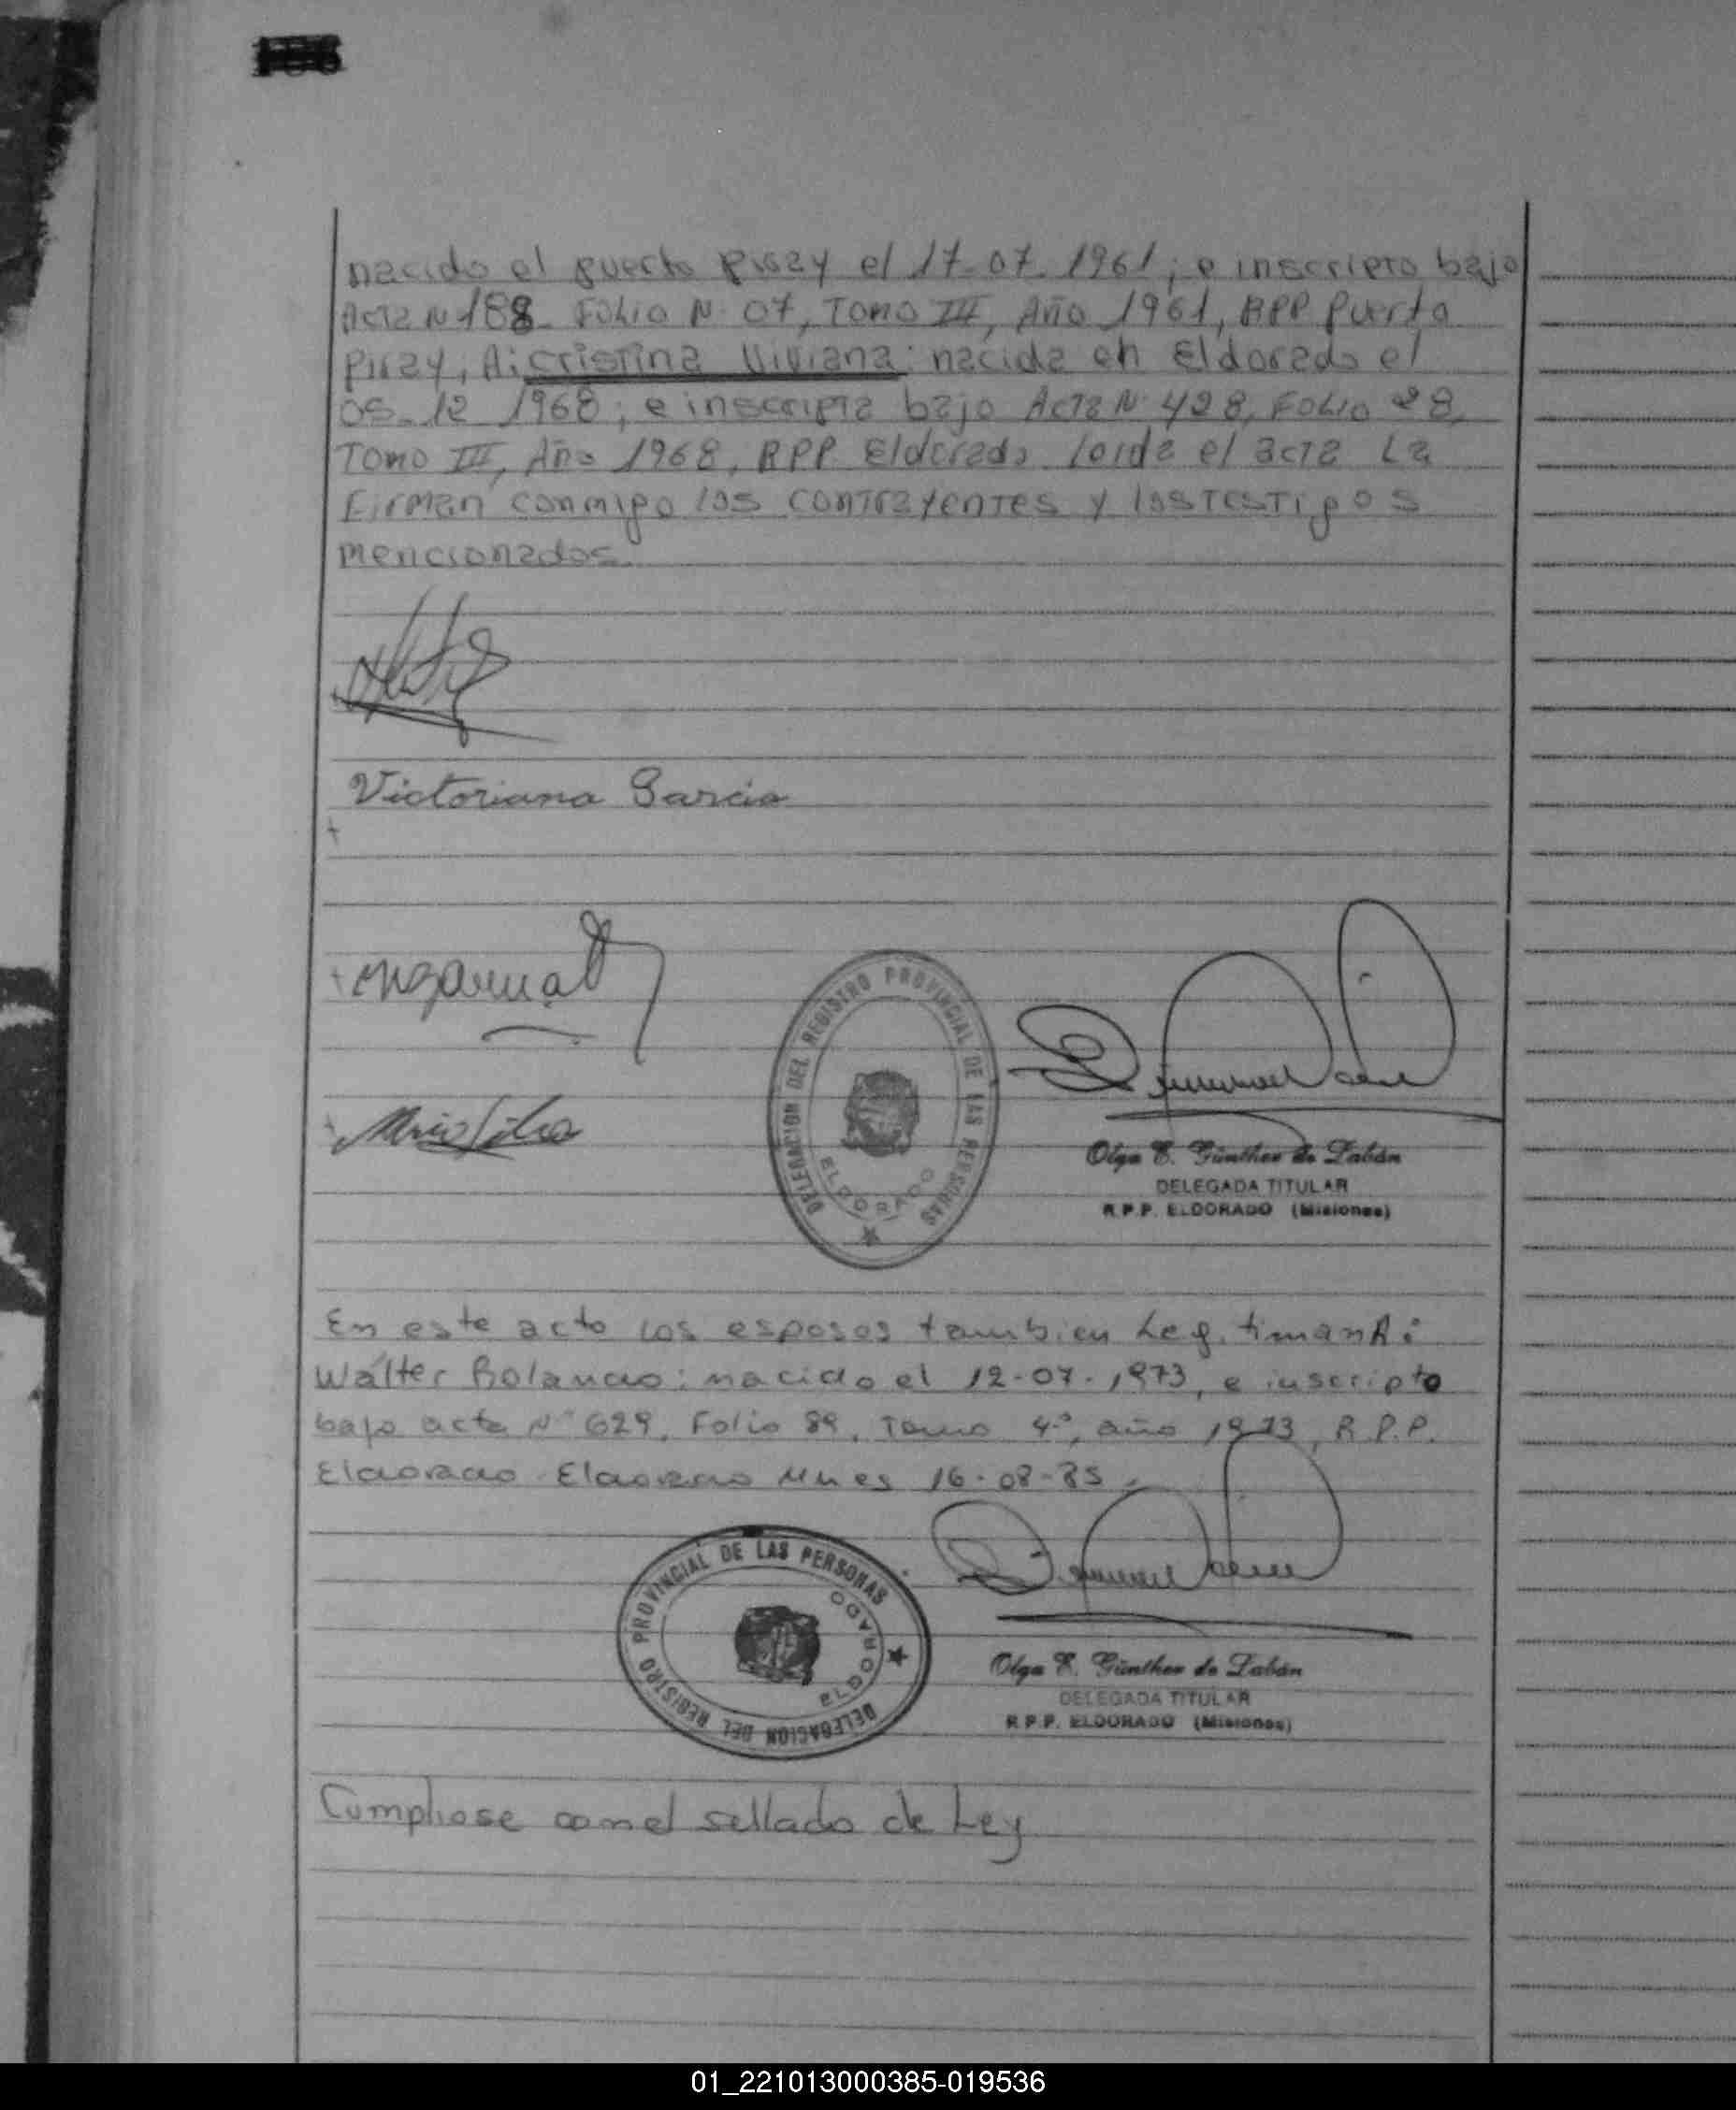 nacido el puerto Piray el 17-07-1961; e inscripto bajo
Acta N 188 Folio N. 07, Tomo III, Año 1961, RPP Puerto
Piray, A: Cristina Viviana: nacida en Eldorado el
05-12 1968; e inscripta bajo Acta N. 428, Folio 28,
Tomo III, Año 1968, RPP Eldorado loida el acta La
Firman conmigo los contrayentes y los testigos
mencionados.
Victoriana Garcia
DELEGACION DEL REGISTRO PROVINCIAL DE LAS PERSONAS
ELDORADO
Olga E. Günther de Labán
DELEGADA TITULAR
R.P.P. ELDORADO (Misiones)
En este acto los esposos tambien Legitiman A:
Walter Rolando: nacido el 12-07-1973, e inscripto
bajo acta N° 629, Folio 89, Tomo 4°, año 1973, R.P.P.
Eldorado Eldorado Mnes 16-08-85.
DELEGACION DEL REGISTRO PROVINCIAL DE LAS PERSONAS
ELDORADO
Olga E. Günther de Labán
DELEGADA TITULAR
R.P.P. ELDORADO (Misiones)
Cumpliose con el sellado de Ley
01_221013000385-019536